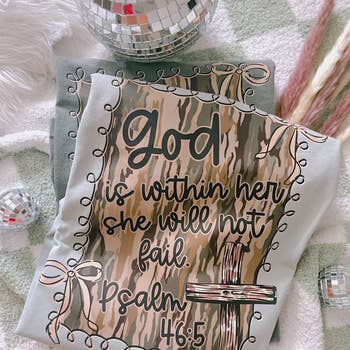 God
is within her
she will not
fail.
Psalm
46:5